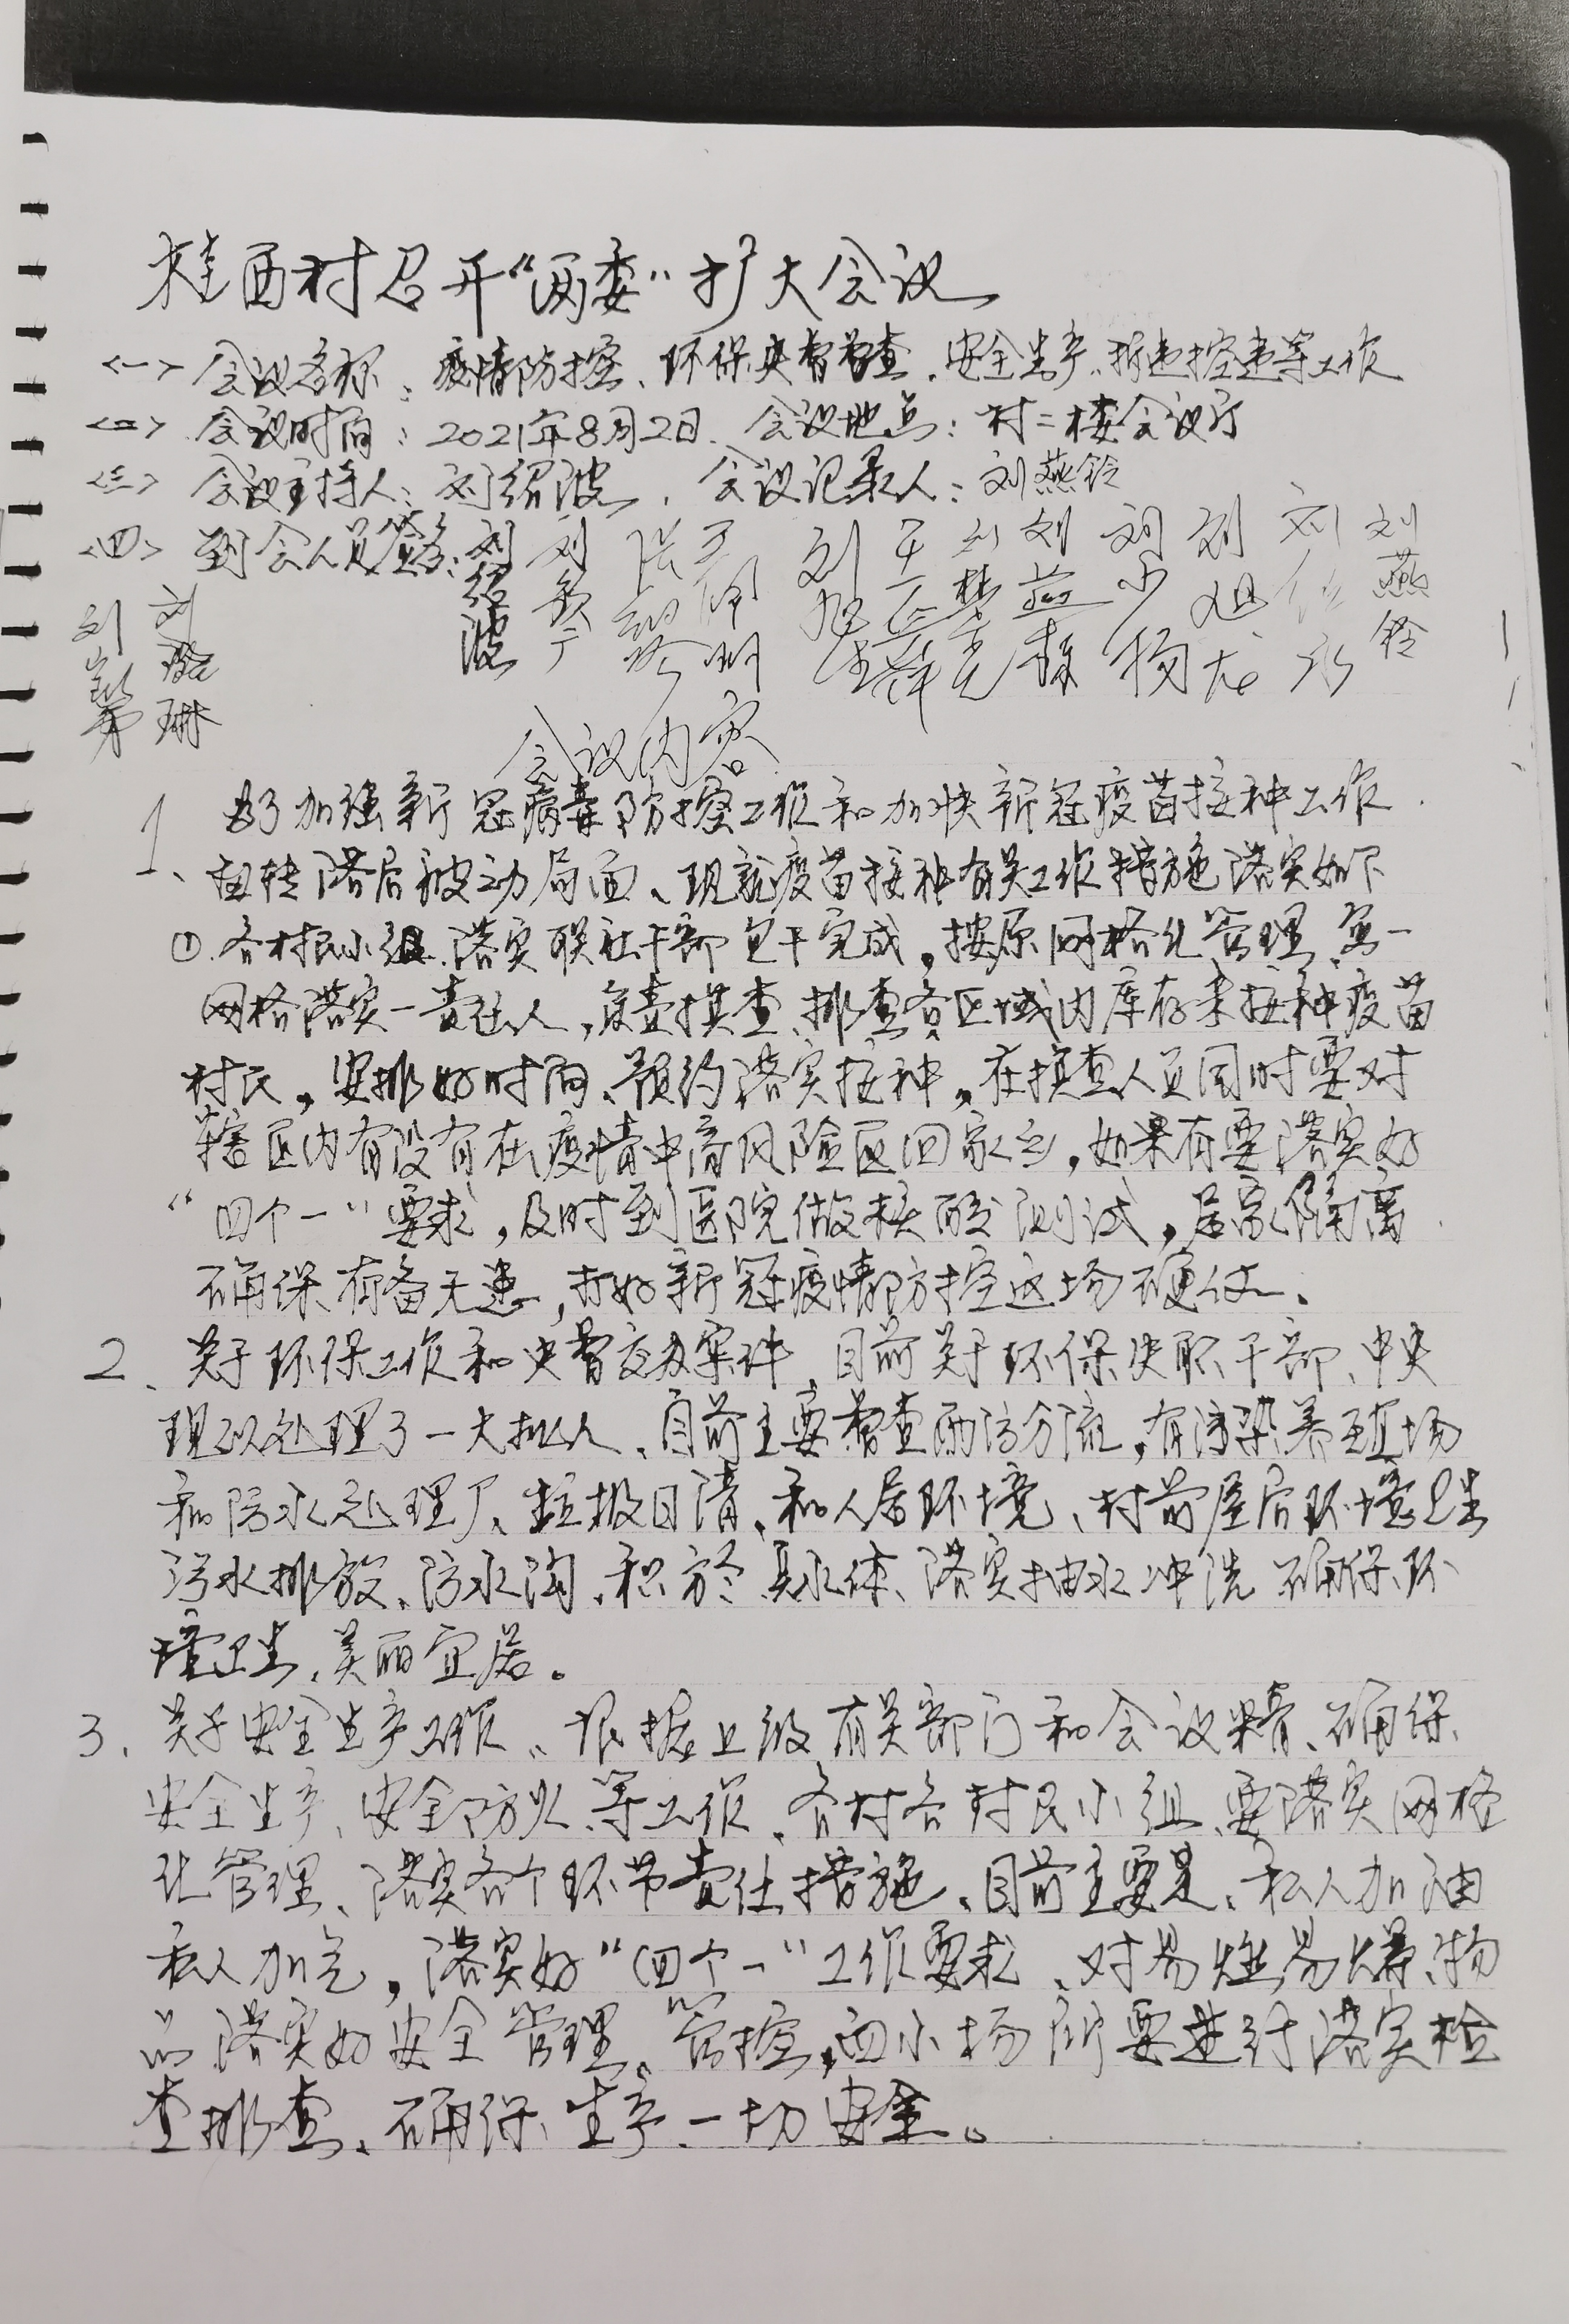 桂西村召开“两委”扩大会议
<一> 会议名称：疫情防控、环保央督督查、安全生产、拆违控违等工作
<二> 会议时间：2021年8月2日、会议地点：村二楼会议厅
<三> 会议主持人：刘绍波、会议记录人：刘燕铃
<四> 到会人员签名：刘绍波 刘 刘旭 刘 刘少 刘旭龙 刘 刘燕铃
刘 刘 琳
会议内容
1、为了加强新冠病毒防控工作和加快新冠疫苗接种工作.
扭转落后被动局面、现就疫苗接种有关工作措施落实如下
①.各村民小组.落实联社干部包干完成,按原网格化管理.每一
网格落实一责任人,负责摸查、排查各区域内库存未接种疫苗
村民,安排好时间、预约落实接种,在摸查人员同时要对
辖区内有没有在疫情中高风险区回家的,如果有要落实好
“四个一”要求,及时到医院做核酸测试,居家隔离
确保有备无患,打好新冠疫情防控这场硬仗、
2、关于环保工作和央督交办案件,目前关于环保失职干部、中央
现以处理了一大批人、目前主要督查雨污分流,有污染养殖场
和污水处理厂、垃圾日清、和人居环境、村前屋后环境卫生
污水排放、污水沟、积于臭水体、落实抽水冲洗 确保环
境卫生、美丽宜居。
3、关于安全生产工作、根据上级有关部门和会议精、确保、
安全生产、安全防火等工作、各村各村民小组、要落实网格
化管理、落实各个环节责任措施、目前主要是、私人加油
私人加气,落实好“四个一”工作要求、对易燃易爆物
品落实好安全管理。管控,四小场所要进行落实检
查排查、确保生产一切安全。